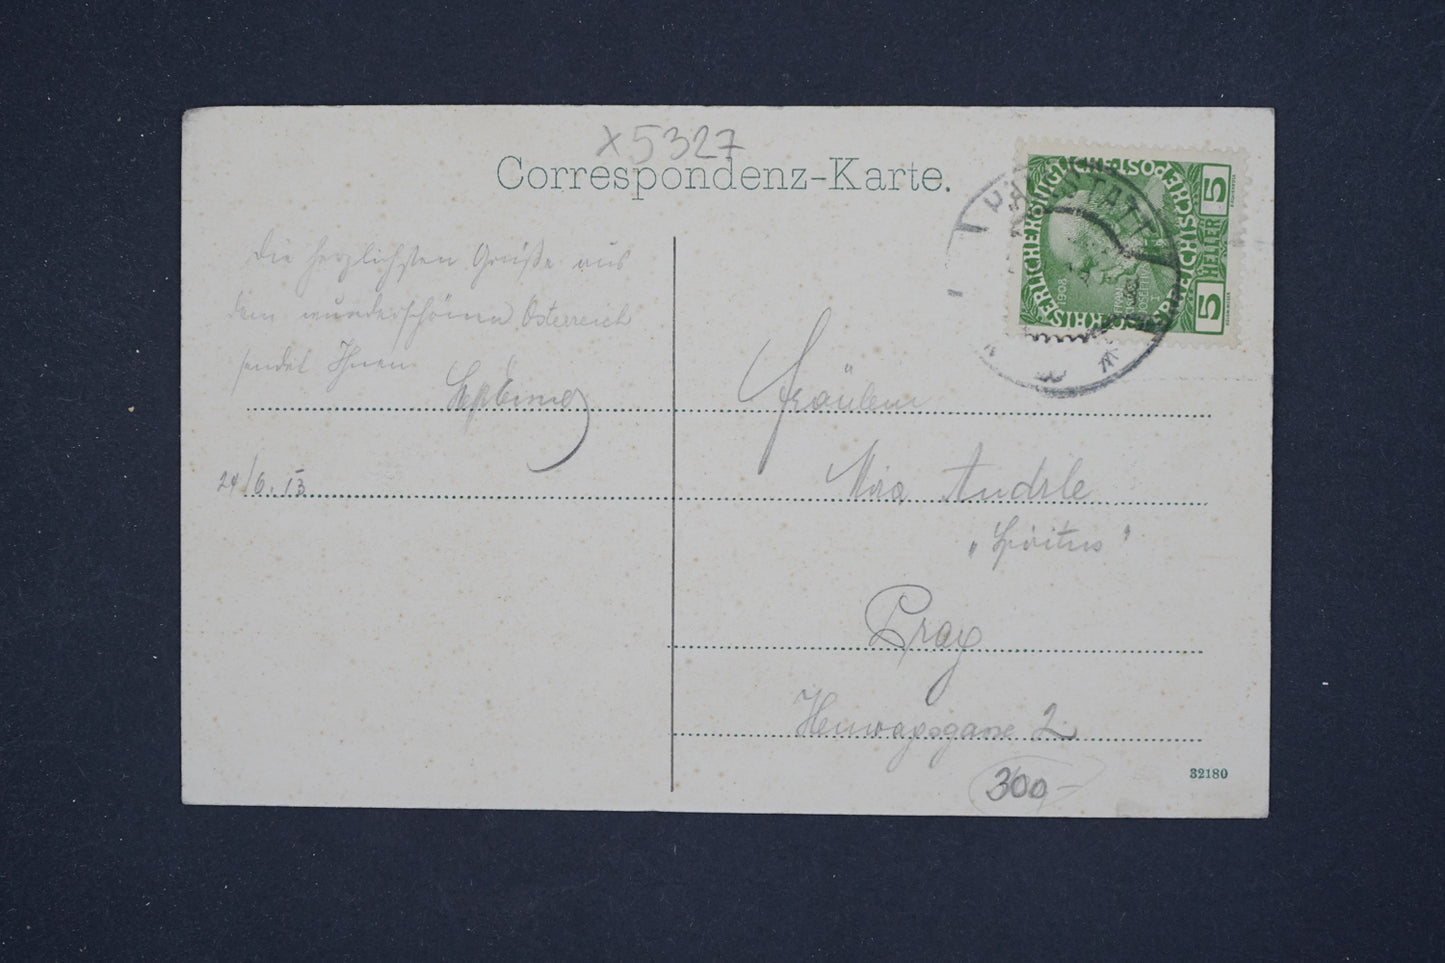 x5327
Correspondenz-Karte.
KAISERLICHE KÖNIGLICHE ÖSTERREICHISCHE POST
5 HELLER 5
1908
FRANZ JOSEPH I
Die herzlichsten Grüße aus
dem wunderschönen Österreich
sendet Ihnen
24/6. 13
Fräulein
Mira Andrle
"Spiritus"
Prag
2
300,-
32180